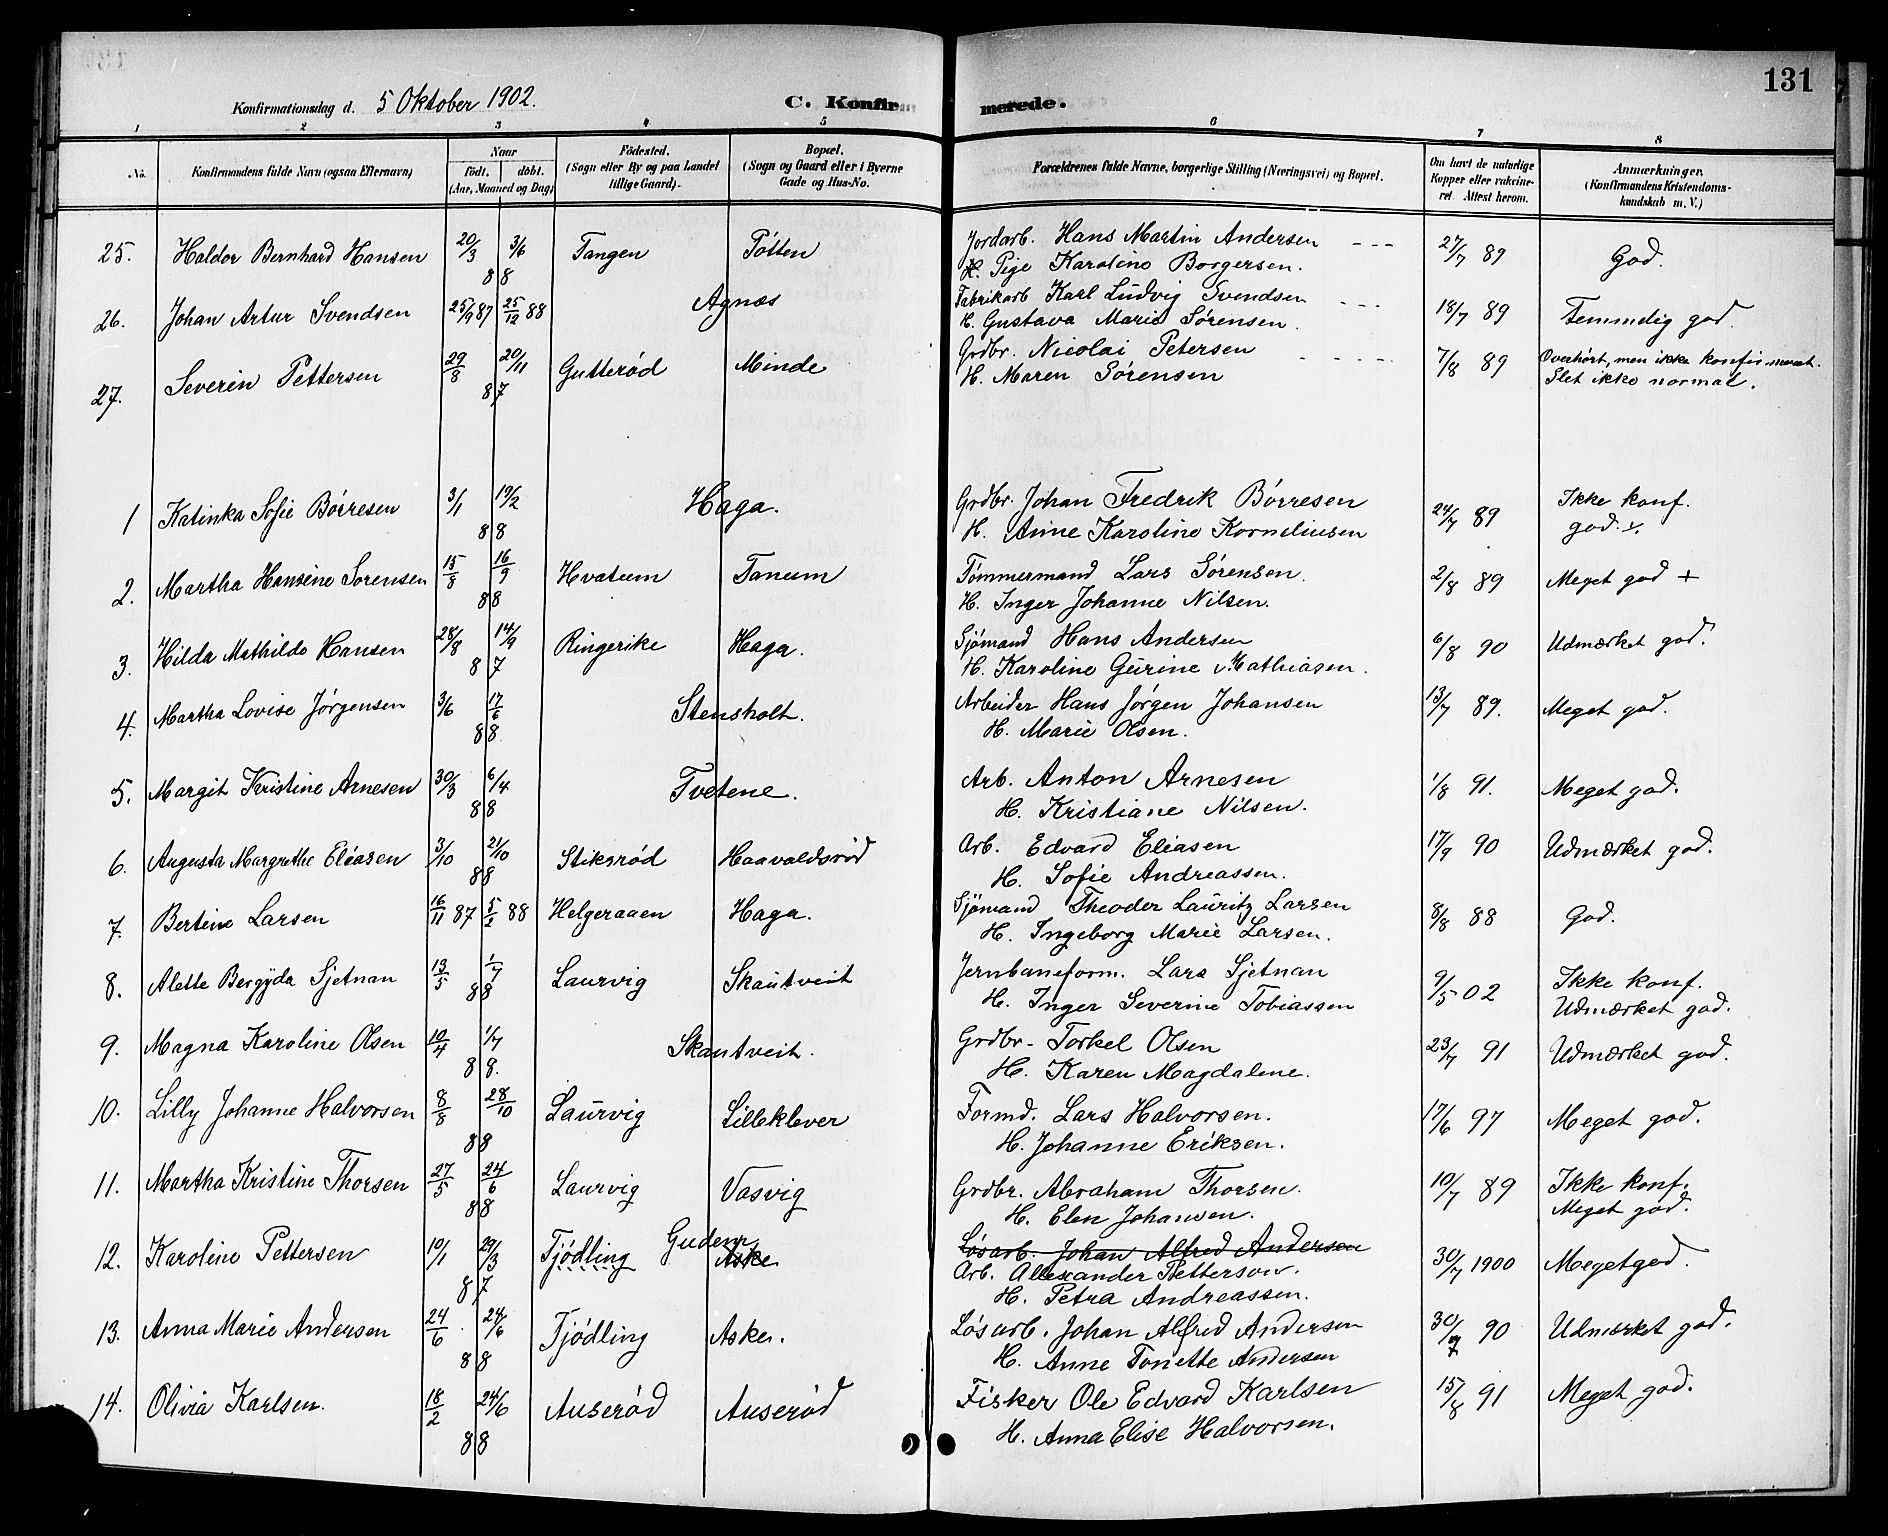 131
Konfirmationsdag d. 5 Oktober 1902. C. Konfirmerede.
1 2 3 4 5 6 7 8
No. Konfirmandens fulde Navn (ogsaa Efternavn) Naar födt. döbt. (Aar, Maaned og Dag) Födested. (Sogn eller By og paa Landet tillige Gaard). Bopæl. (Sogn og Gaard eller i Byerne Gade og Hus-No. Forældrenes fulde Navne, borgerlige Stilling (Næringsvei) og Bopæl. Om havt de naturlige Kopper eller vakcineret. Attest herom. Anmærkninger. (Konfirmandens Kristendomskundskab m. V.)
25. Haldor Bernhard Hansen 20/3 3/6 88 Tangen Pötten Jordarb. Hans Martin Andersen 27/7 89 God.
H. Pige Karoline Borgersen.
26. Johan Artur Svendsen 25/9 87 25/12 88 Agnæs Fabrikarb Karl Ludvig Svendsen 18/7 89 Temmelig god.
H. Gustava Marie Sørensen.
27. Severin Pettersen 29/8 20/11 87 Gutterød Minde Grdbr. Nicolai Petersen 7/8 89 Overhørt, men ikke konfirmeret.
H. Maren Sørensen Slet ikke normal.
1 Katinka Sofie Børresen 3/1 19/2 88 Haga. Grdbr. Johan Fredrik Børresen 24/7 89 Ikke konf.
H. Anne Karoline Korneliusen god. +
2. Martha Hansine Sorensen 15/8 16/9 88 Hvatum Tanum Tømmermand Lars Sørensen. 2/8 89 Meget god +
H. Inger Johanne Nilsen.
3. Hilda Mathilde Hansen 28/8 14/9 87 Ringerike Haga. Sjømand Hans Andersen 6/8 90 Udmærket god.
H. Karoline Gurine v. Mathiasen.
4. Martha Lovise Jørgensen 3/6 17/6 88. Stensholt. Arbeider Hans Jørgen Johansen 13/7 89. Meget god.
H. Marie Olsen.
5. Margit Kristine Arnesen 30/3 6/4 88 Tvetene. Arb. Anton Arnesen 1/8 91. Meget god.
H. Kristiane Nilsen.
6. Augusta Margrethe Eliasen 3/10 21/10 88 Stiksrød Haavaldsrød Arb. Edvard Eliasen 17/9 90 Udmærket god.
H. Sofie Andreassen.
7. Bertine Larsen 16/11 87 5/2 88 Helgeraaen Haga. Sjømand Theoder Lauritz Larsen 8/8 88 God.
H. Ingeborg Marie Larsen.
8. Alette Bergyda Sjetnan 13/5 1/7 88 Laurvig Skautveit Jernbaneform. Lars Sjetnan 9/5 02 Ikke konf.
H. Inger Severine Tobiassen Udmærket god.
9. Magna Karoline Olsen 10/4 1/7 88. Skautveit. Grdbr. Torkel Olsen 23/7 91 Udmærket god.
H. Karen Magdalene.
10. Lilly Johanne Halvorsen 8/8 28/10 88 Laurvig Lilleklever Formd. Lars Halvorsen. 17/6 97 Meget god.
H. Johanne Eriksen.
11. Martha Kristine Thorsen 27/5 24/6 88 Laurvig Vasvig Grdbr. Abraham Thorsen. 10/7 89 Ikke konf.
H. Elen Johansen. Meget god.
12. Karoline Pettersen 10/1 29/3 87 Tjödling Gudem Aske Løsarb. Johan Alfred Andersen 30/7 1900 Meget god.
Arb. Allexander Petterson.
H. Petra Andreassen.
13. Anna Marie Andersen 24/6 24/6 88 Tjödling Aske. Løsarb. Johan Alfred Andersen 30/7 90 Udmærket god.
H. Anne Tonette Andersen
14. Olivia Karlsen. 18/2 24/6 88 Auserød Auserød Fisker Ole Edvard Karlsen 15/8 91 Meget god.
H. Anna Elise Halvorsen.